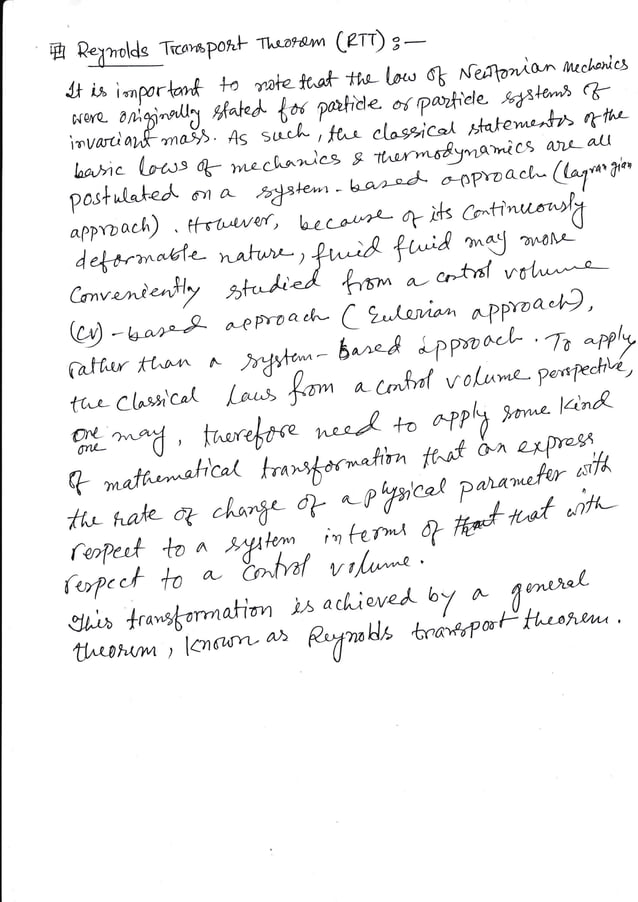 Reynolds Transport Theorem (RTT) :—
It is important to note that the low of Newtonian Mechanics
were originally stated for particle or particle systems of
invariant mass. As such, the classical statements of the
basic lows of mechanics & thermodynamics are all
postulated on a system-based approach (Lagrangian
approach). However, because of its Continuously
deformable nature, fluid fluid may more
Conveniently studied from a control volume
(CV) - based approach (Eulerian approach),
rather than a system-based approach. To apply
the Classical Laws from a control volume perspective,
one may, therefore need to apply some kind
one
of mathematical transformation that can express
the rate of change of a physical parameter with
respect to a system interms of that that with
respect to a control volume.
This transformation is achieved by a general
theorem, known as Reynolds transport theorem.